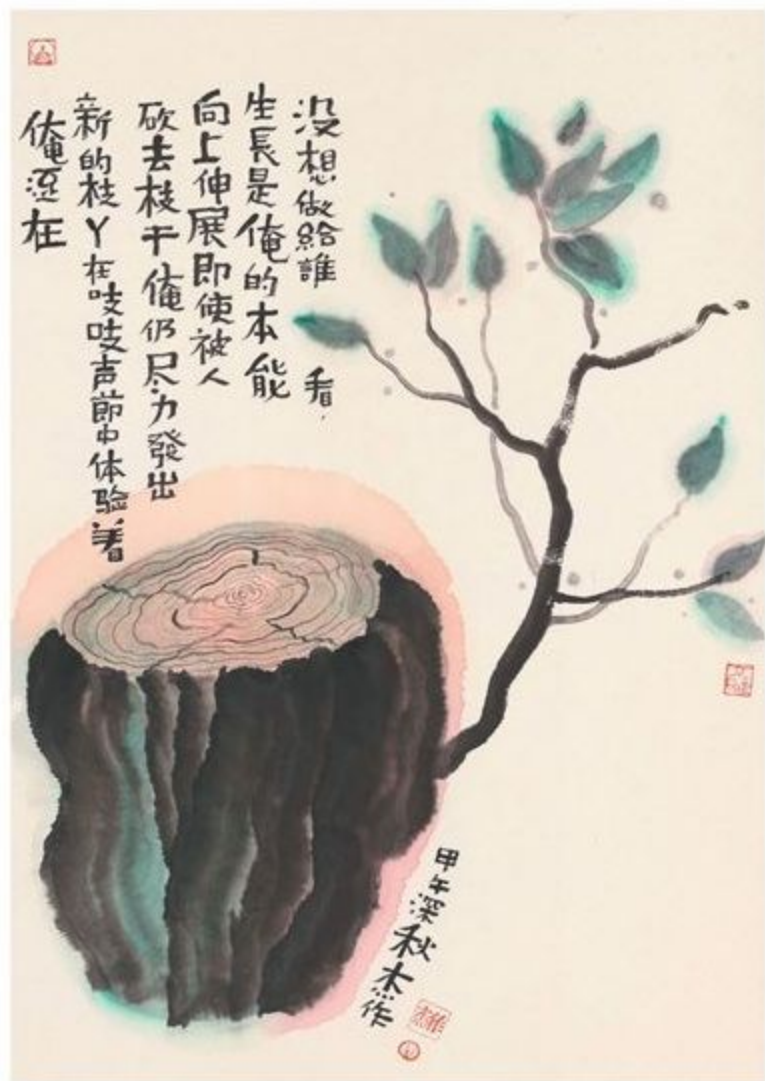 没想做給誰 看，
生長是俺的本能
向上伸展即使被人
砍去枝干俺仍尽力發出
新的枝丫在吱吱声節中体验着
俺還在
甲午深秋杰作